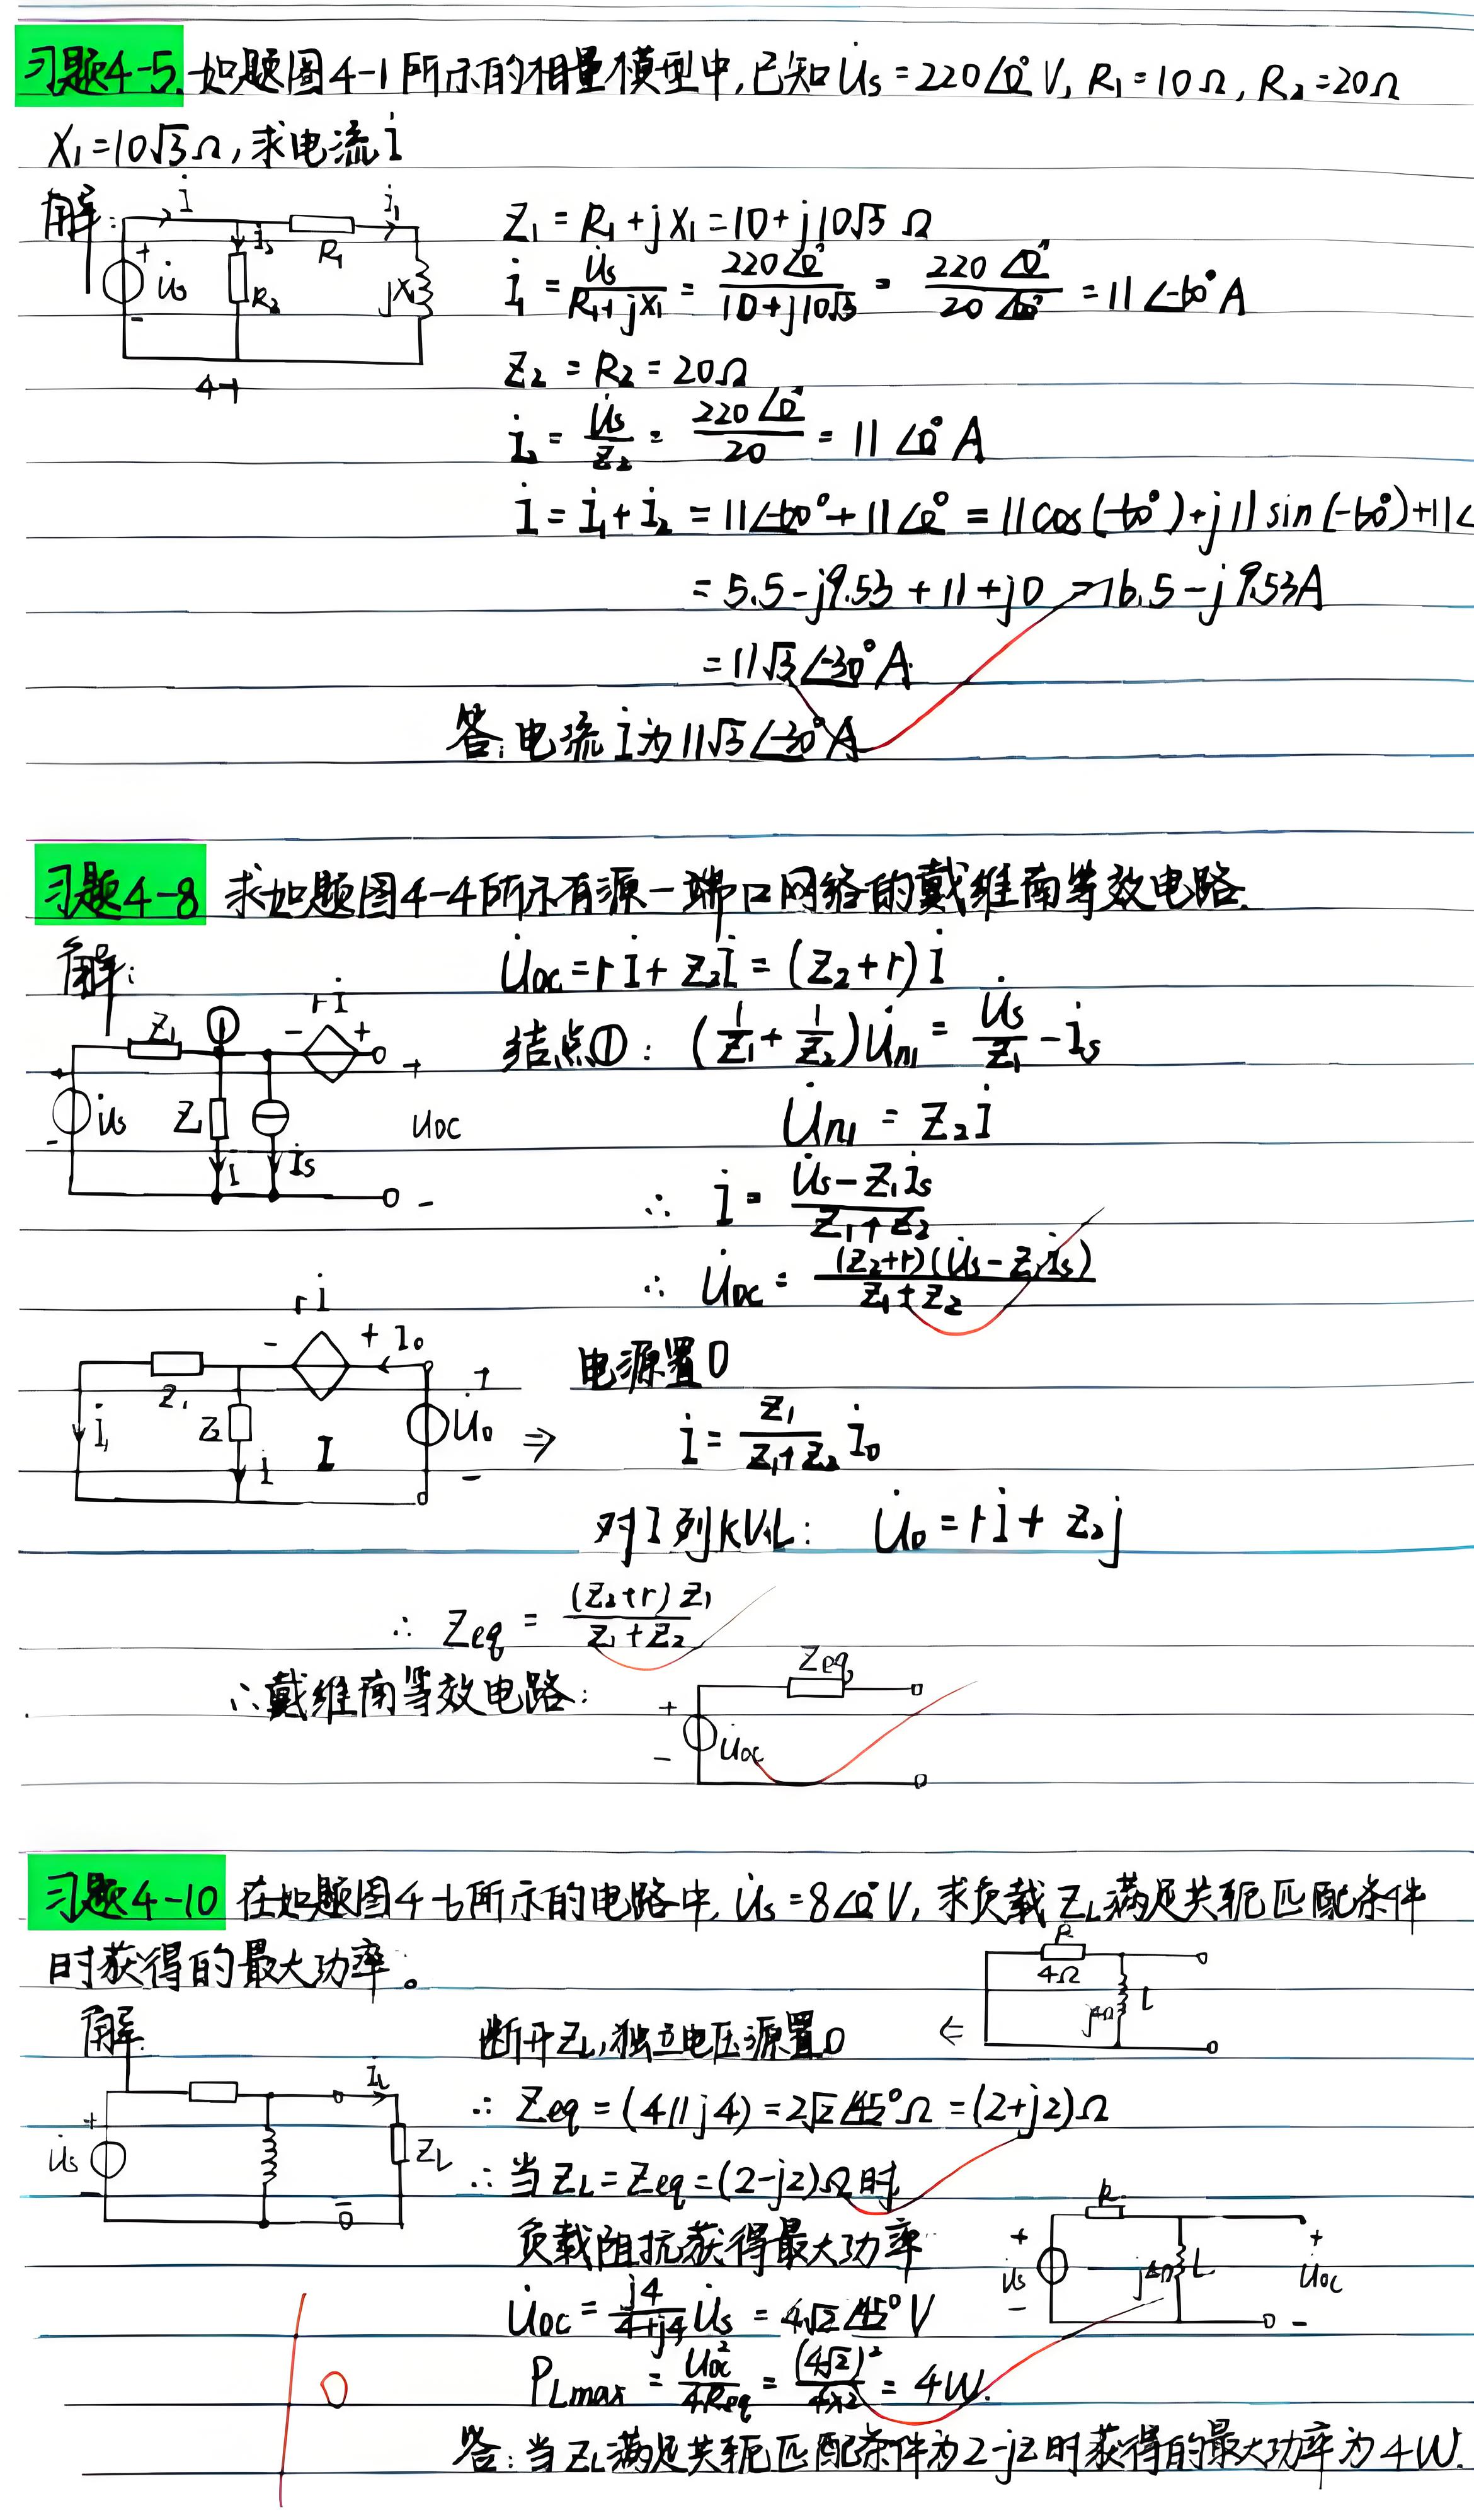 习题4-5. 如题图4-1所示的相量模型中,已知U̇s=220∠0°V, R₁=10Ω, R₂=20Ω
X₁=10√3Ω,求电流İ
解:
İ
İ₁
İ₂
R₁
+
U̇s
-
R₂
jX₁
4-1
Z₁=R₁+jX₁=10+j10√3 Ω
İ₁=U̇s/(R₁+jX₁)=220∠0°/(10+j10√3)=220∠0°/(20∠60°)=11∠-60°A
Z₂=R₂=20Ω
İ₂=U̇s/Z₂=220∠0°/20=11∠0°A
İ=İ₁+İ₂=11∠-60°+11∠0°=11cos(-60°)+j11sin(-60°)+11∠
=5.5-j9.53+11+j0=16.5-j9.53A
=11√3∠-30°A
答:电流İ为11√3∠-30°A
习题4-8 求如题图4-4所示有源一端口网络的戴维南等效电路.
解:
U̇oc=rİ+Z₂İ=(Z₂+r)İ
Z₁
①
- rİ +
+
U̇s
-
İ
İs
+
Uoc
-
结点①: (1/Z₁+1/Z₂)U̇n₁=U̇s/Z₁-İs
U̇n₁=Z₂İ
∴ İ=(U̇s-Z₁İs)/(Z₁+Z₂)
∴ U̇oc=(Z₂+r)(U̇s-Z₁İs)/(Z₁+Z₂)
rİ
- + İ₀
Z₁
İ₁
Z₂
İ
I
+
U̇₀
-
⇒
电源置0
İ=Z₁/(Z₁+Z₂) İ₀
对I列KVL: U̇₀=rİ+Z₂İ
∴ Zeq=(Z₂+r)Z₁/(Z₁+Z₂)
∴戴维南等效电路:
Zeq
+
U̇oc
-
习题4-10 在如题图4-6所示的电路中, U̇s=8∠0°V, 求负载ZL满足共轭匹配条件
时获得的最大功率。
R
4Ω
j4Ω
L
解:
断开ZL,独立电压源置0 ⇐
İL
+
U̇s
-
ZL
∴ Zeq=(4//j4)=2√2∠45°Ω=(2+j2)Ω
∴当ZL=Zeq=(2-j2)Ω时
负载阻抗获得最大功率
R
+
U̇s
-
j4Ω
L
+
U̇oc
-
U̇oc=j4/(4+j4) U̇s=4√2∠45°V
PLmax=Uoc²/4Req=(4√2)²/4×2=4W.
答:当ZL满足共轭匹配条件为2-j2时获得的最大功率为4W.
10